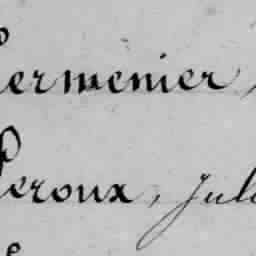 Lermenier,
Leroux, Jul